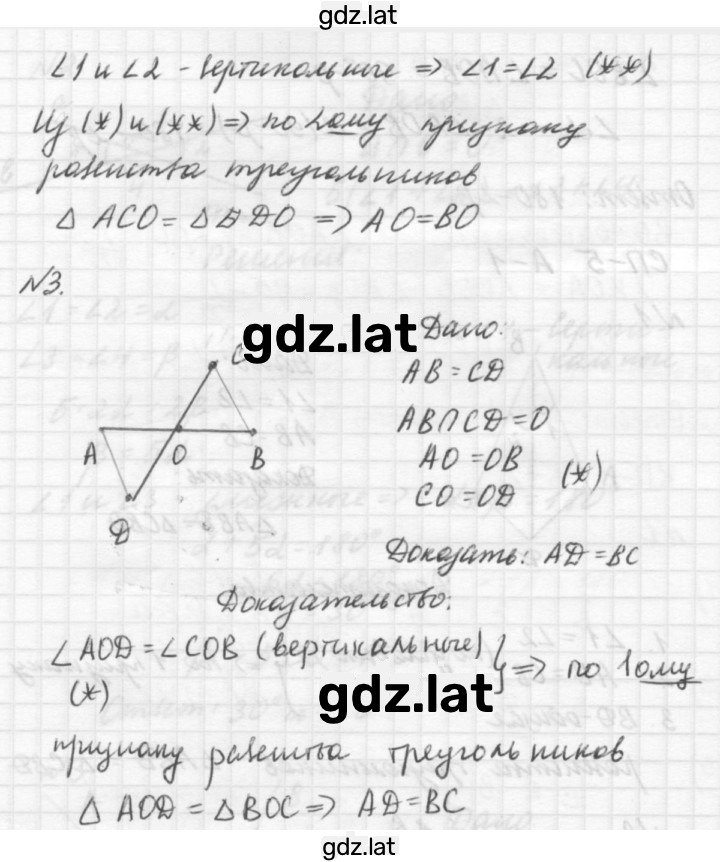 gdz.lat
∠1 и ∠2 - вертикольные => ∠1=∠2 (**)
Из (*) и (**) => по 2ому признаку
равенства треугольников
△ ACO = △ BDO => AO=BO
№3.
gdz.lat
Дано:
C
AB = CD
AB∩CD = O
A O B
AO = OB (*)
CO = OD
D
Доказать: AD = BC
Доказательство:
∠AOD = ∠COB (вертикальные) } => по 1ому
(*)
gdz.lat
признаку равенства треугольников
△ AOD = △ BOC => AD = BC
gdz.lat